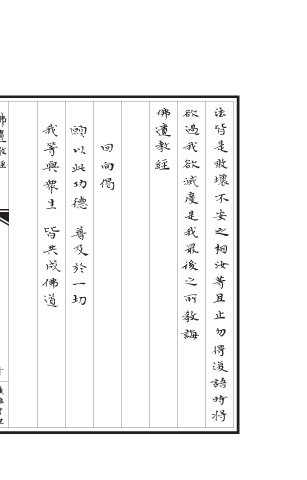 法皆是敗壞不安之相汝等且止勿得復語時將
欲過我欲滅度是我最後之所教誨
佛遺教經
回向偈
願以此功德 普及於一切
我等與眾生 皆共成佛道
佛遺教經
十